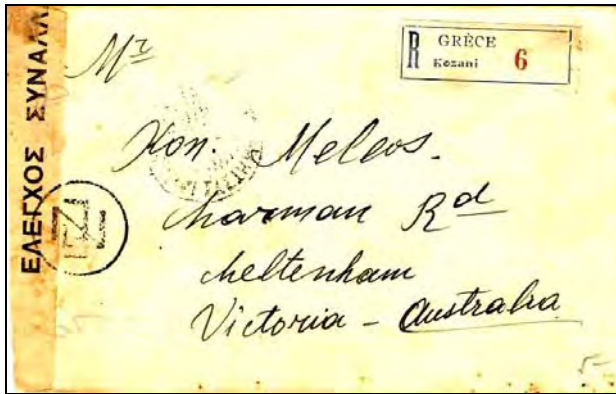 ΕΛΕΓΧΟΣ ΣΥΝΑΛΛ
Mr
R GRÈCE
Kozani 6
Kon. Meleos.
Charman Rd
Cheltenham
Victoria - Australia